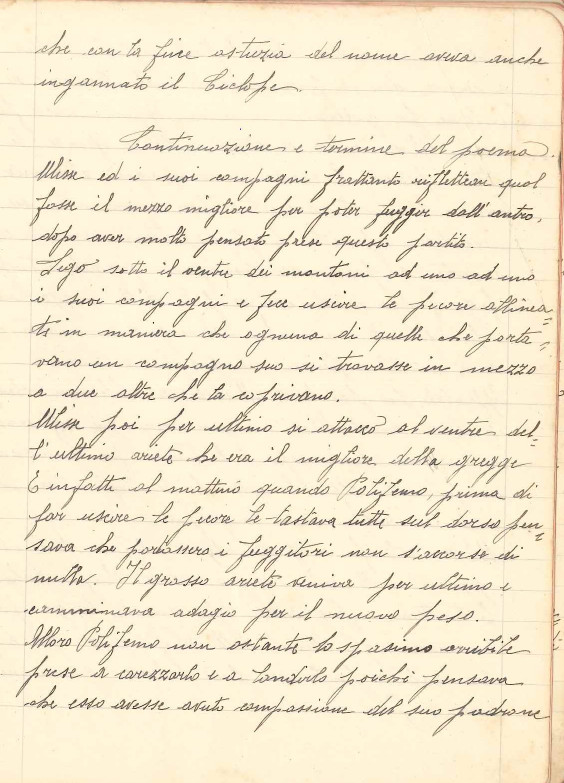 che con la fine astuzia del nome aveva anche
ingannato il Ciclope.
Continuazione e termine del poema.
Ulisse ed i suoi compagni frattanto riflettean qual
fosse il mezzo migliore per poter fuggir dall'antro,
dopo aver molto pensato prese questo partito.
Legò sotto il ventre dei montoni ad uno ad uno
i suoi compagni e fece uscire le pecore allinea-
te in maniera che ognuna di quelle che porta-
vano un compagno suo si trovasse in mezzo
a due altre che la coprivano.
Ulisse poi per ultimo si attaccò al ventre del-
l'ultimo ariete che era il migliore della gregge
E infatti al mattino quando Polifemo, prima di
far uscire le pecore le tastava tutte sul dorso pen-
sava che portassero i fuggitori non s'accorse di
nulla. Il grosso ariete veniva per ultimo e
camminava adagio per il nuovo peso.
Allora Polifemo non ostante lo spasimo orribile
prese a carezzarlo e a lodarlo poichè pensava
che esso avesse avuto compassione del suo padrone